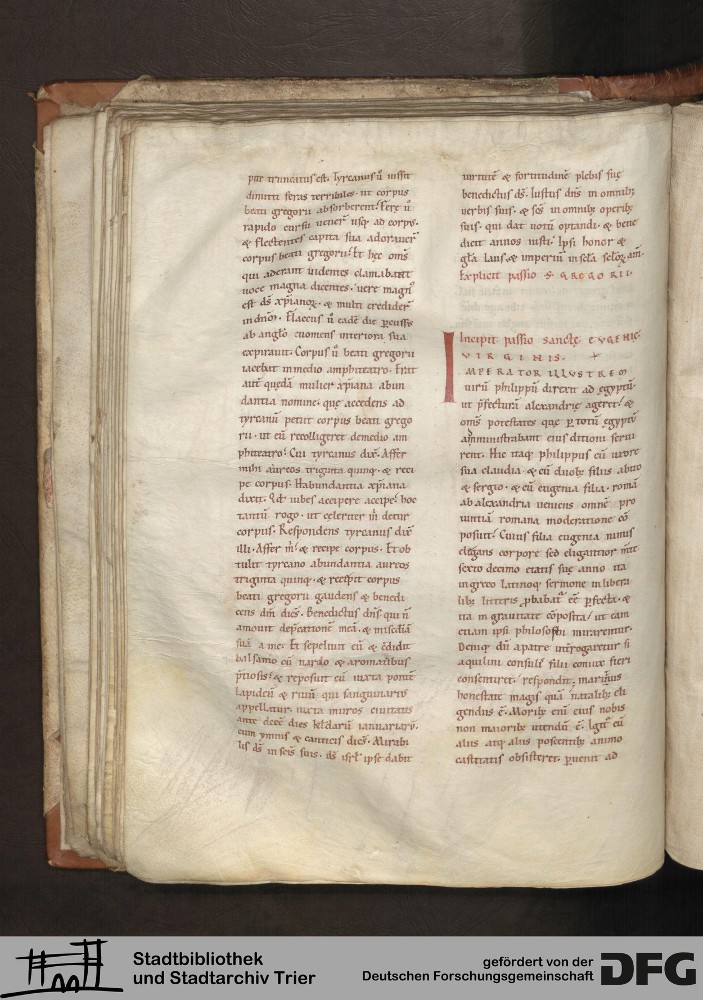 pite truncatus est. Tyrcanus ū iussit
dimitti feras terribiles. ut corpus
beati gregorii absorberent. Ferę ū
rapido cursu uener̄ usq; ad corps.
& flectentes capita sua adorauer̄
corpus beati gregorii. Et hęc om̄s
qui aderant uidentes clamabant
uoce magna dicentes. uere magn᾽
est ds̄ xp̄ianoꝝ. & multi creder̄
in dn̄m. Flaccus ū eadē die ꝑcussus
ab angło euomens interiora sua
expirauit. Corpus ū beati gregorii
iacebat in medio amphiteatro. Erat
aut̄ quędā mulier xp̄iana abun
dantia nomine. quę accedens ad
tyrcanū petiit corpus beati grego
rii. ut eū recolligeret de medio am
phiteatro. Cui tyrcanus dix̄. Affer
mihi aureos triginta quinq; & reci
pe corpus. Habundantia xp̄iana
dixit. Qd̄ iubes accipere accipe. hoc
tantū rogo. ut celeriter m̄ detur
corpus. Respondens tyrcanus dix̄
illi. Affer m̄. & recipe corpus. Et ob
tulit tyrcano abundantia aureos
triginta quinq;. & recepit corpus
beati gregorii gaudens & benedi
cens dm̄ dicēs. Benedictus dn̄s qui n̄
amouit dep̄cationē meā. & misc̄diā
suā a me. Et sepeliuit eū & c̄didit
balsamo cū nardo & aromatibus
p̄tiosis. & reposuit eū iuxta pontē
lapideū & riuū qui sanguinarius
appellatur. iuxta muros ciuitatis
ante decē dies kl̄darū ianuariarū.
cum ymnis & canticis dicēs. Mirabi
lis ds̄ in sc̄is suis. ds̄ isrł ipse dabit
uirtutē & fortitudinē plebis suę
benedictus ds̄. Iustus dn̄s in omnib;
uerbis suis. & sc̄s in omnib; operib;
suis. qui dat uotū optandi. & bene
dicit annos iusti. Ipsi honor &
gła laus & imperiū in scła scloꝝ. am̄.
Explicit passio S. GREGORII.
Incipit passio sanctę EVGENIę
VIRGINIS.
IMPERATOR ILLVSTREM
uirū philippū direxit ad egyptū.
ut p̄fecturā alexandrię ageret. &
om̄s potestates quę ꝑ totū egyptū
amministrabant eius ditioni serui
rent. Hic itaq; philippus cū uxore
sua claudia. & cū duob; filiis auito
& sergio. & cū eugenia filia. romā
ab alexandria ueniens omnē pro
uintiā romana moderatione cō
posuit. Cuius filia eugenia nimis
elegans corpore sed elegantior m̄te
sexto decimo etatis suę anno ita
in greco latinoq; sermone in libera
lib; litteris ꝓbabat᾽ eē ꝑfecta. &
ita in grauitate cōposita. ut eam
etiam ipsi philosophi mirarentur.
Deniq; dū a patre int̄rogaretur si
aquilini consulis filii comite fieri
consentiret. respondit; maritus
honestate magis quā natalib; eli
gendus ē. Morib; enī eius nobis
non maiorib; utendū ē. Igit᾽ cū
aliis atq; aliis poscentib; animo
castitatis obsisteret. ꝑuenit ad
Stadtbibliothek
und Stadtarchiv Trier
gefördert von der
Deutschen Forschungsgemeinschaft
DFG